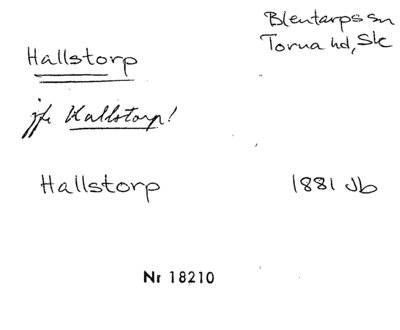 Blentarps sn
Torna hd, Sk
Hallstorp
jfr Kallstorp!
Hallstorp
1881 Jb
Nr 18210